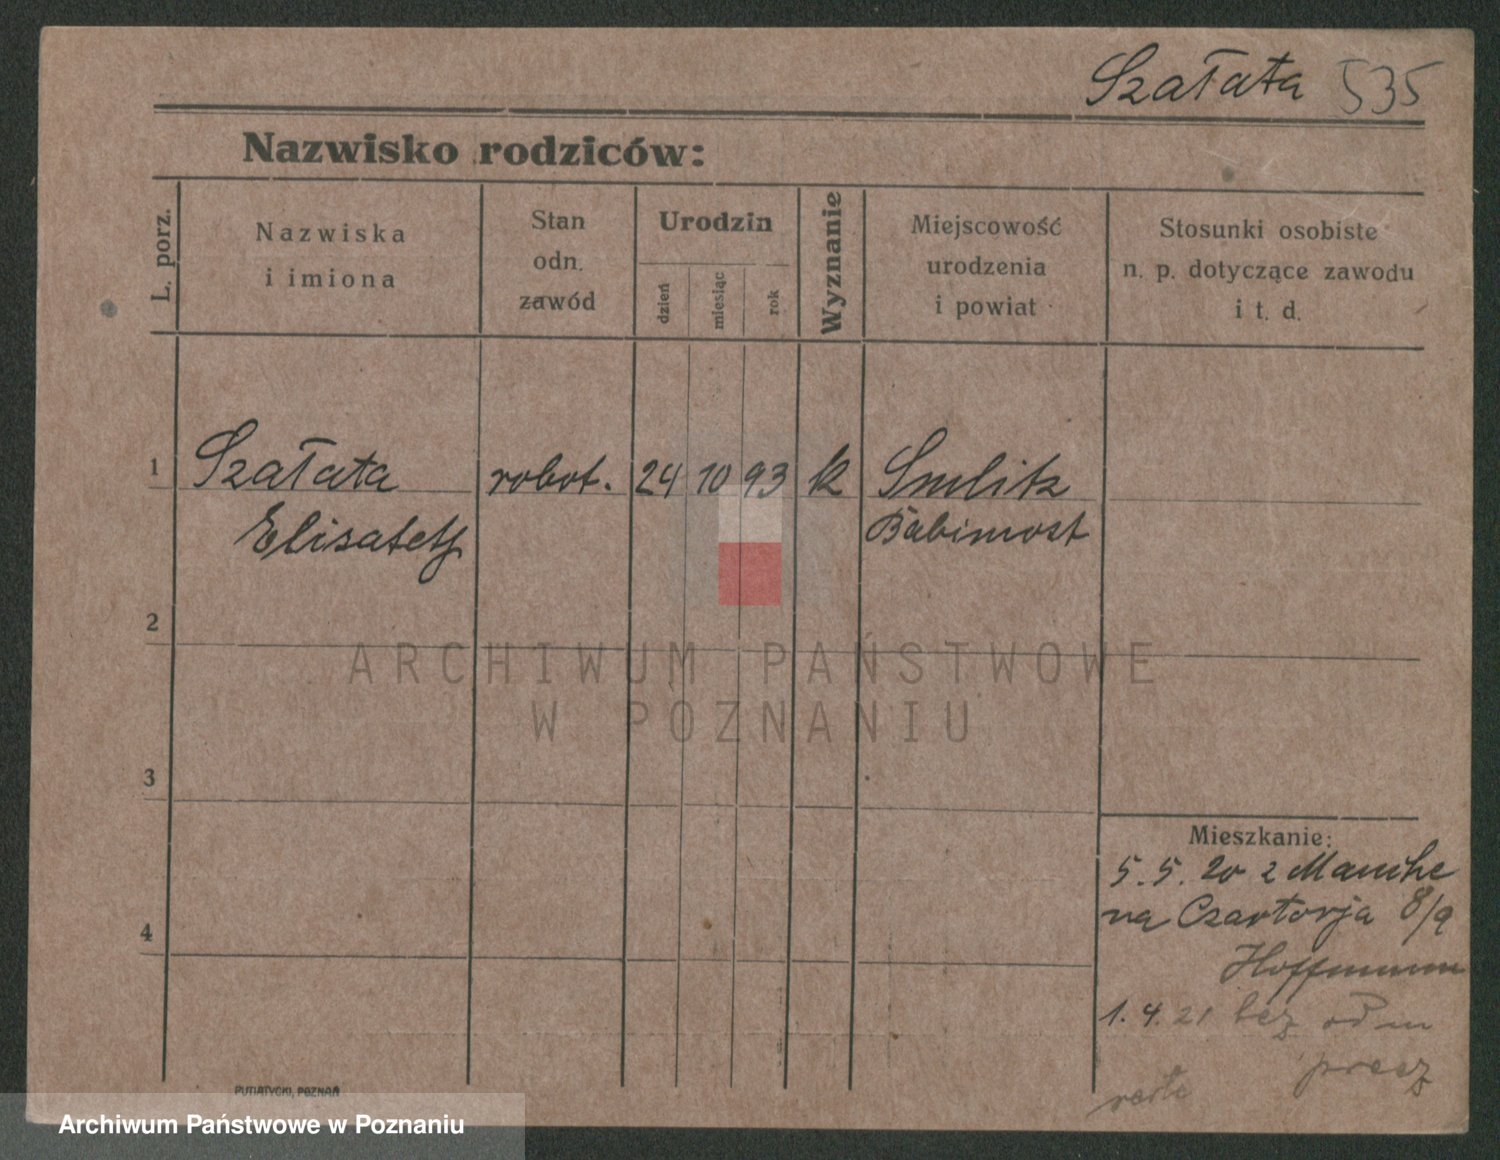 Szałata 535
Nazwisko rodziców:
L. porz.
Nazwiska
i imiona
Stan
odn.
zawód
Urodzin
dzień
miesiąc
rok
Wyznanie
Miejscowość
urodzenia
i powiat
Stosunki osobiste
n. p. dotyczące zawodu
i t. d.
1 Szałata robot. 24 10 93 k
Elisabeth Babimost
2
ARCHIWUM PAŃSTWOWE
W POZNANIU
3
Mieszkanie:
5.5.20 z
na Czartorja 8/9
Hoffmann
4
1.4.21 bez odm
przez
PUTIATYCKI, POZNAŃ
Archiwum Państwowe w Poznaniu